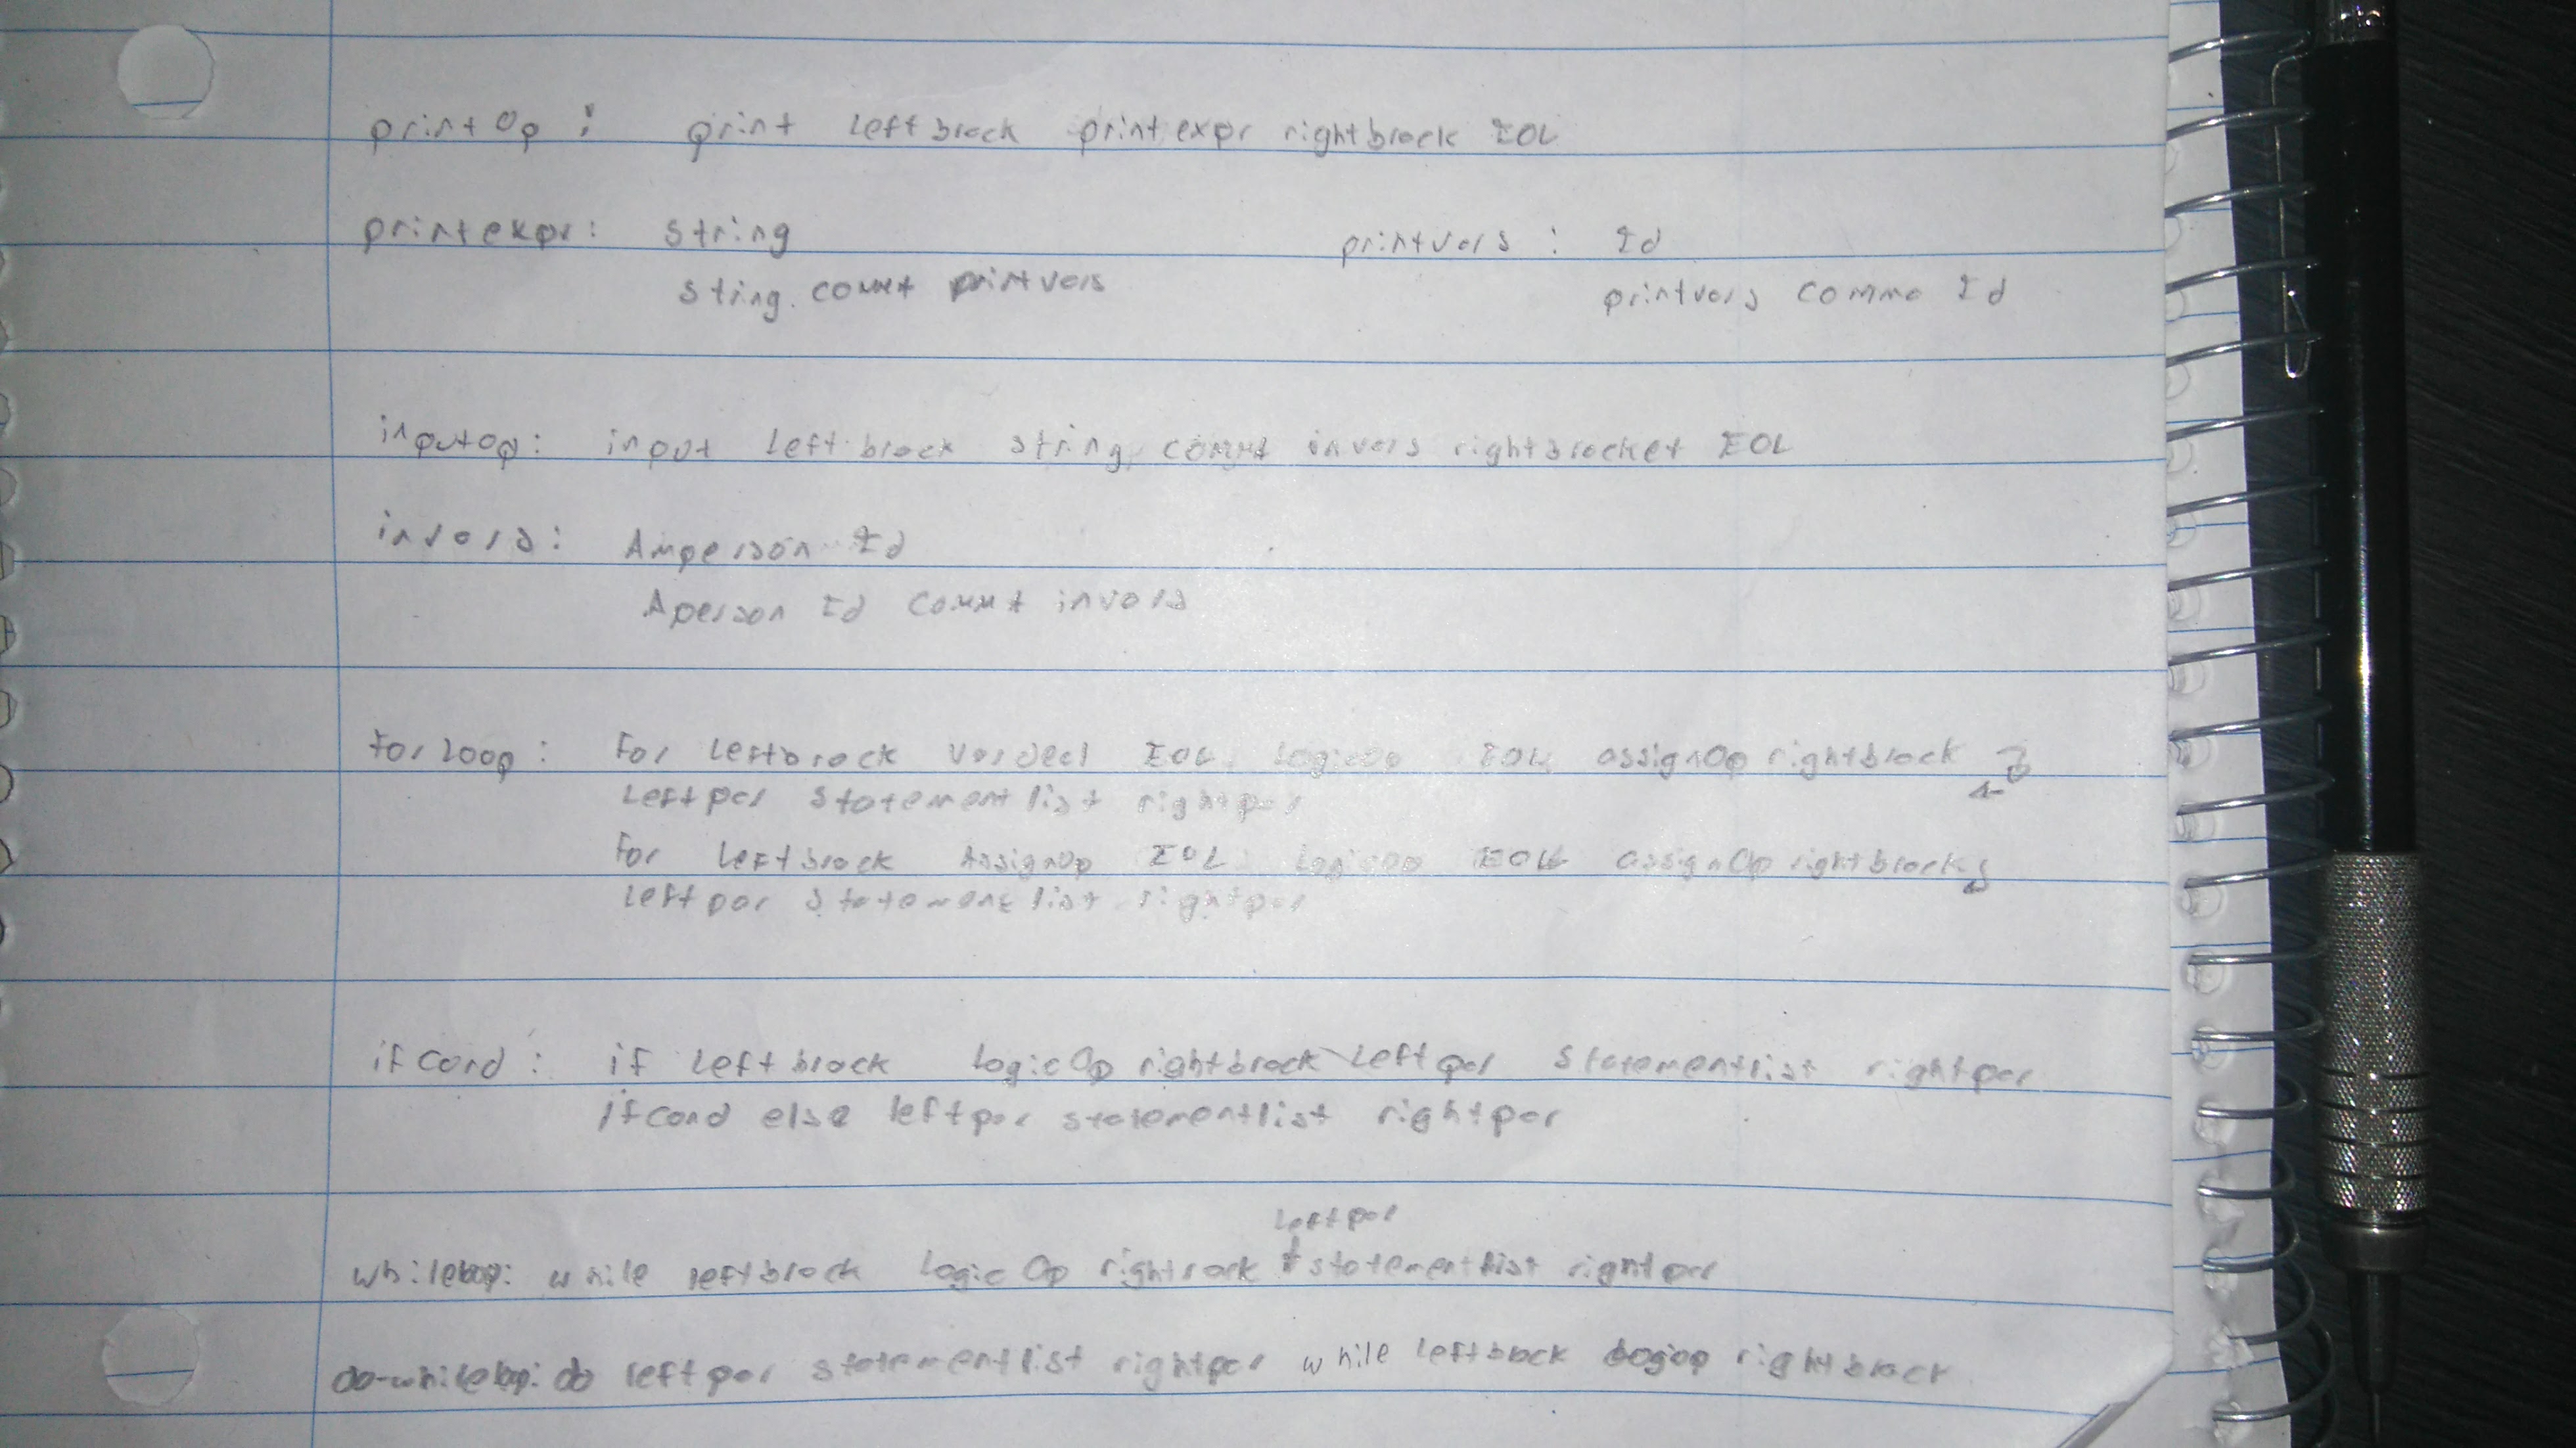 printOp : print leftbrack printexpr rightbrack EOL
printexpr: string
string commt printvars
printvars : Id
printvars comma Id
inputop: input leftbrack string, commt invars rightbracket EOL
invars: Amperson Id
Aperson Id commt invars
forloop: for leftbrack vardecl EOL logicOp EOL assignOp rightbrack
leftpar statementlist rightpar
for leftbrack AssignOp EOL logicOp EOL assignOp rightbrack
leftpar statementlist rightpar
ifcond : if leftbrack logicOp rightbrack leftpar statementlist rightpar
ifcond else leftpar statementlist rightpar
leftpar
whileloop: while leftbrack logicOp rightrack statementlist rightpar
do-whileloop: do leftpar statementlist rightpar while leftbrack logop rightbrack